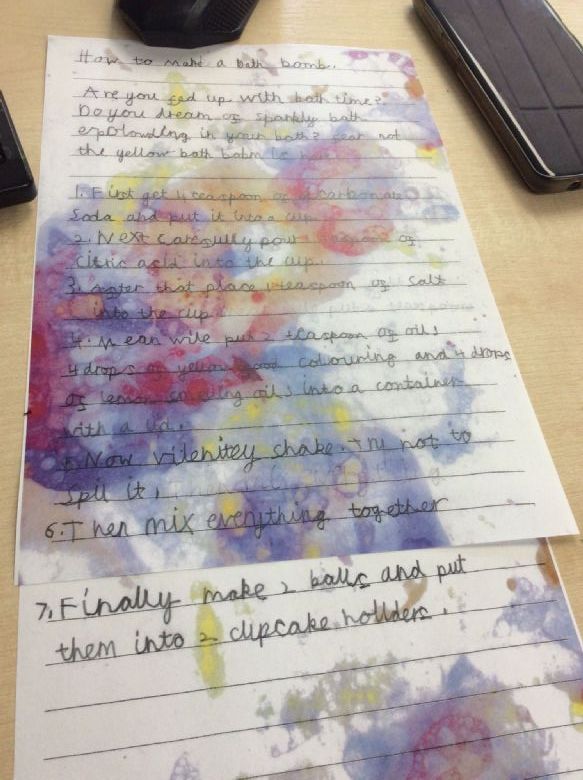 How to make a bath bomb.
Are you fed up with bath time?
Do you dream of sparkly bath
exploweding in your bath? fear not
the yellow bath bobm is here
1. First get 4 teaspoon of bicarbonate
Soda and put it into a cup
2. Next carefully pour teaspoon of
citric acid into the cup.
3. After that place teaspoon of salt
into the cup
4. Mean wile put 2 teaspoon of oils
4 drops of yellow food colouring and 4 drops
of lemon oils into a container
with a lid.
5. Now vilenitey shake. Try not to
spil it.
6. Then mix everything together
7. Finally make 2 balls and put
them into 2 cupcake hollders.